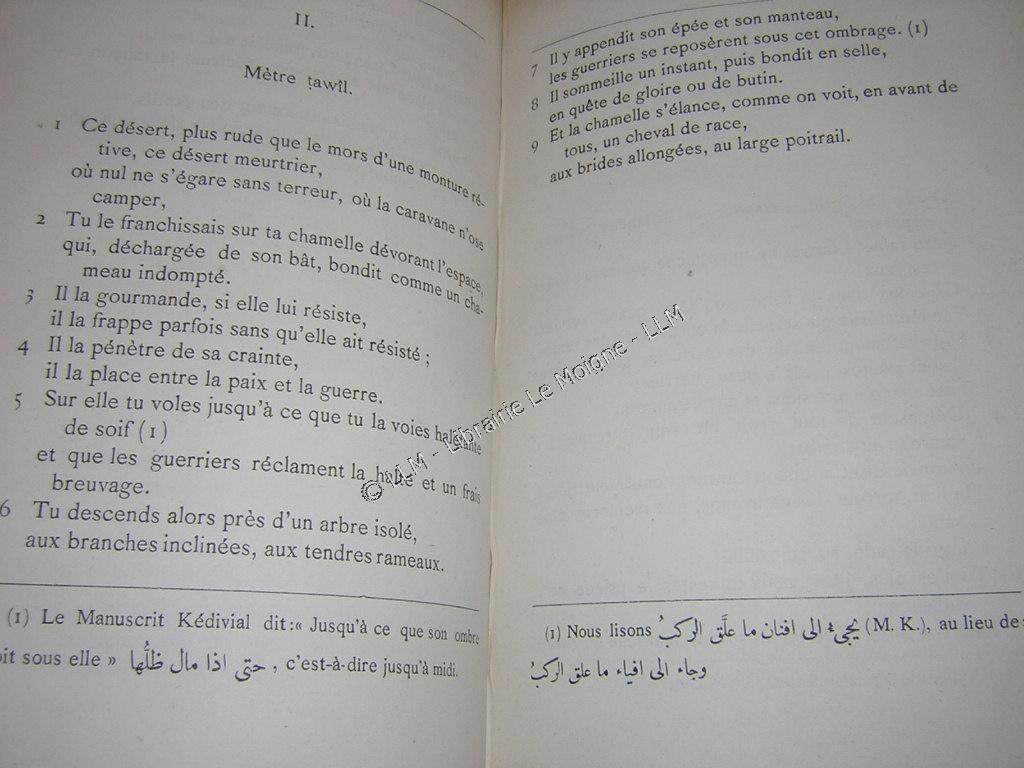 II.
Mètre ṭawîl.
1 Ce désert, plus rude que le mors d'une monture ré-
tive, ce désert meurtrier,
où nul ne s'égare sans terreur, où la caravane n'ose
camper,
2 Tu le franchissais sur ta chamelle dévorant l'espace,
qui, déchargée de son bât, bondit comme un cha-
meau indompté.
3 Il la gourmande, si elle lui résiste,
il la frappe parfois sans qu'elle ait résisté ;
4 Il la pénètre de sa crainte,
il la place entre la paix et la guerre.
5 Sur elle tu voles jusqu'à ce que tu la voies haletante
de soif (1)
et que les guerriers réclament la halte et un frais
breuvage.
6 Tu descends alors près d'un arbre isolé,
aux branches inclinées, aux tendres rameaux.
(1) Le Manuscrit Kédivial dit : « Jusqu'à ce que son ombre
oit sous elle » حتى اذا مال ظلُّها , c'est-à-dire jusqu'à midi.
7 Il y appendit son épée et son manteau,
les guerriers se reposèrent sous cet ombrage. (1)
8 Il sommeille un instant, puis bondit en selle,
en quête de gloire ou de butin.
9 Et la chamelle s'élance, comme on voit, en avant de
tous, un cheval de race,
aux brides allongées, au large poitrail.
(1) Nous lisons يجيء الى افنان ما علَّق الركبُ (M. K.), au lieu de :
وجاء الى افياء ما علق الركبُ
© LLM - Librairie Le Moigne - LLM